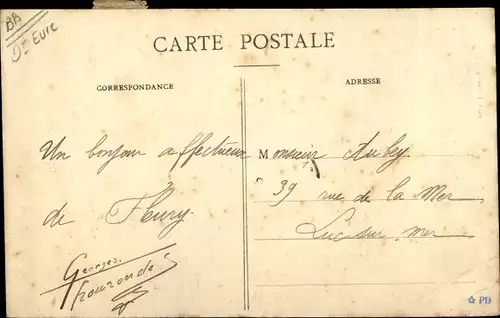 BB
Dt Eure
CARTE POSTALE
CORRESPONDANCE
ADRESSE
Un bonjour affectueux
de Fleury.
Georges
Monsieur Aubey
39 rue de la Mer
Luc sur mer
PB